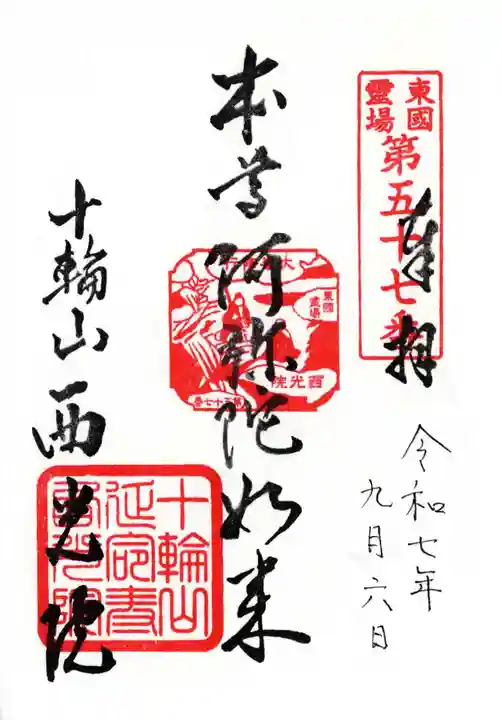 東國
靈場
第五十七番
奉拝
令和七年
九月六日
本尊阿弥陀如来
東國
靈場
西光院
十輪山西光院
十輪山